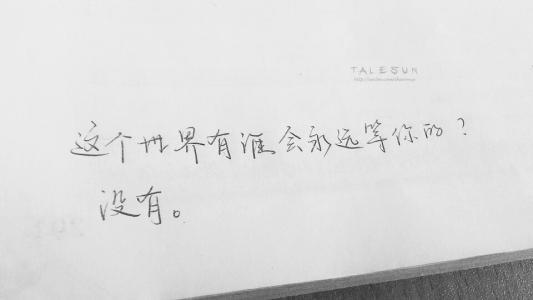 TALESUN
这个世界有谁会永远等你的?
没有。